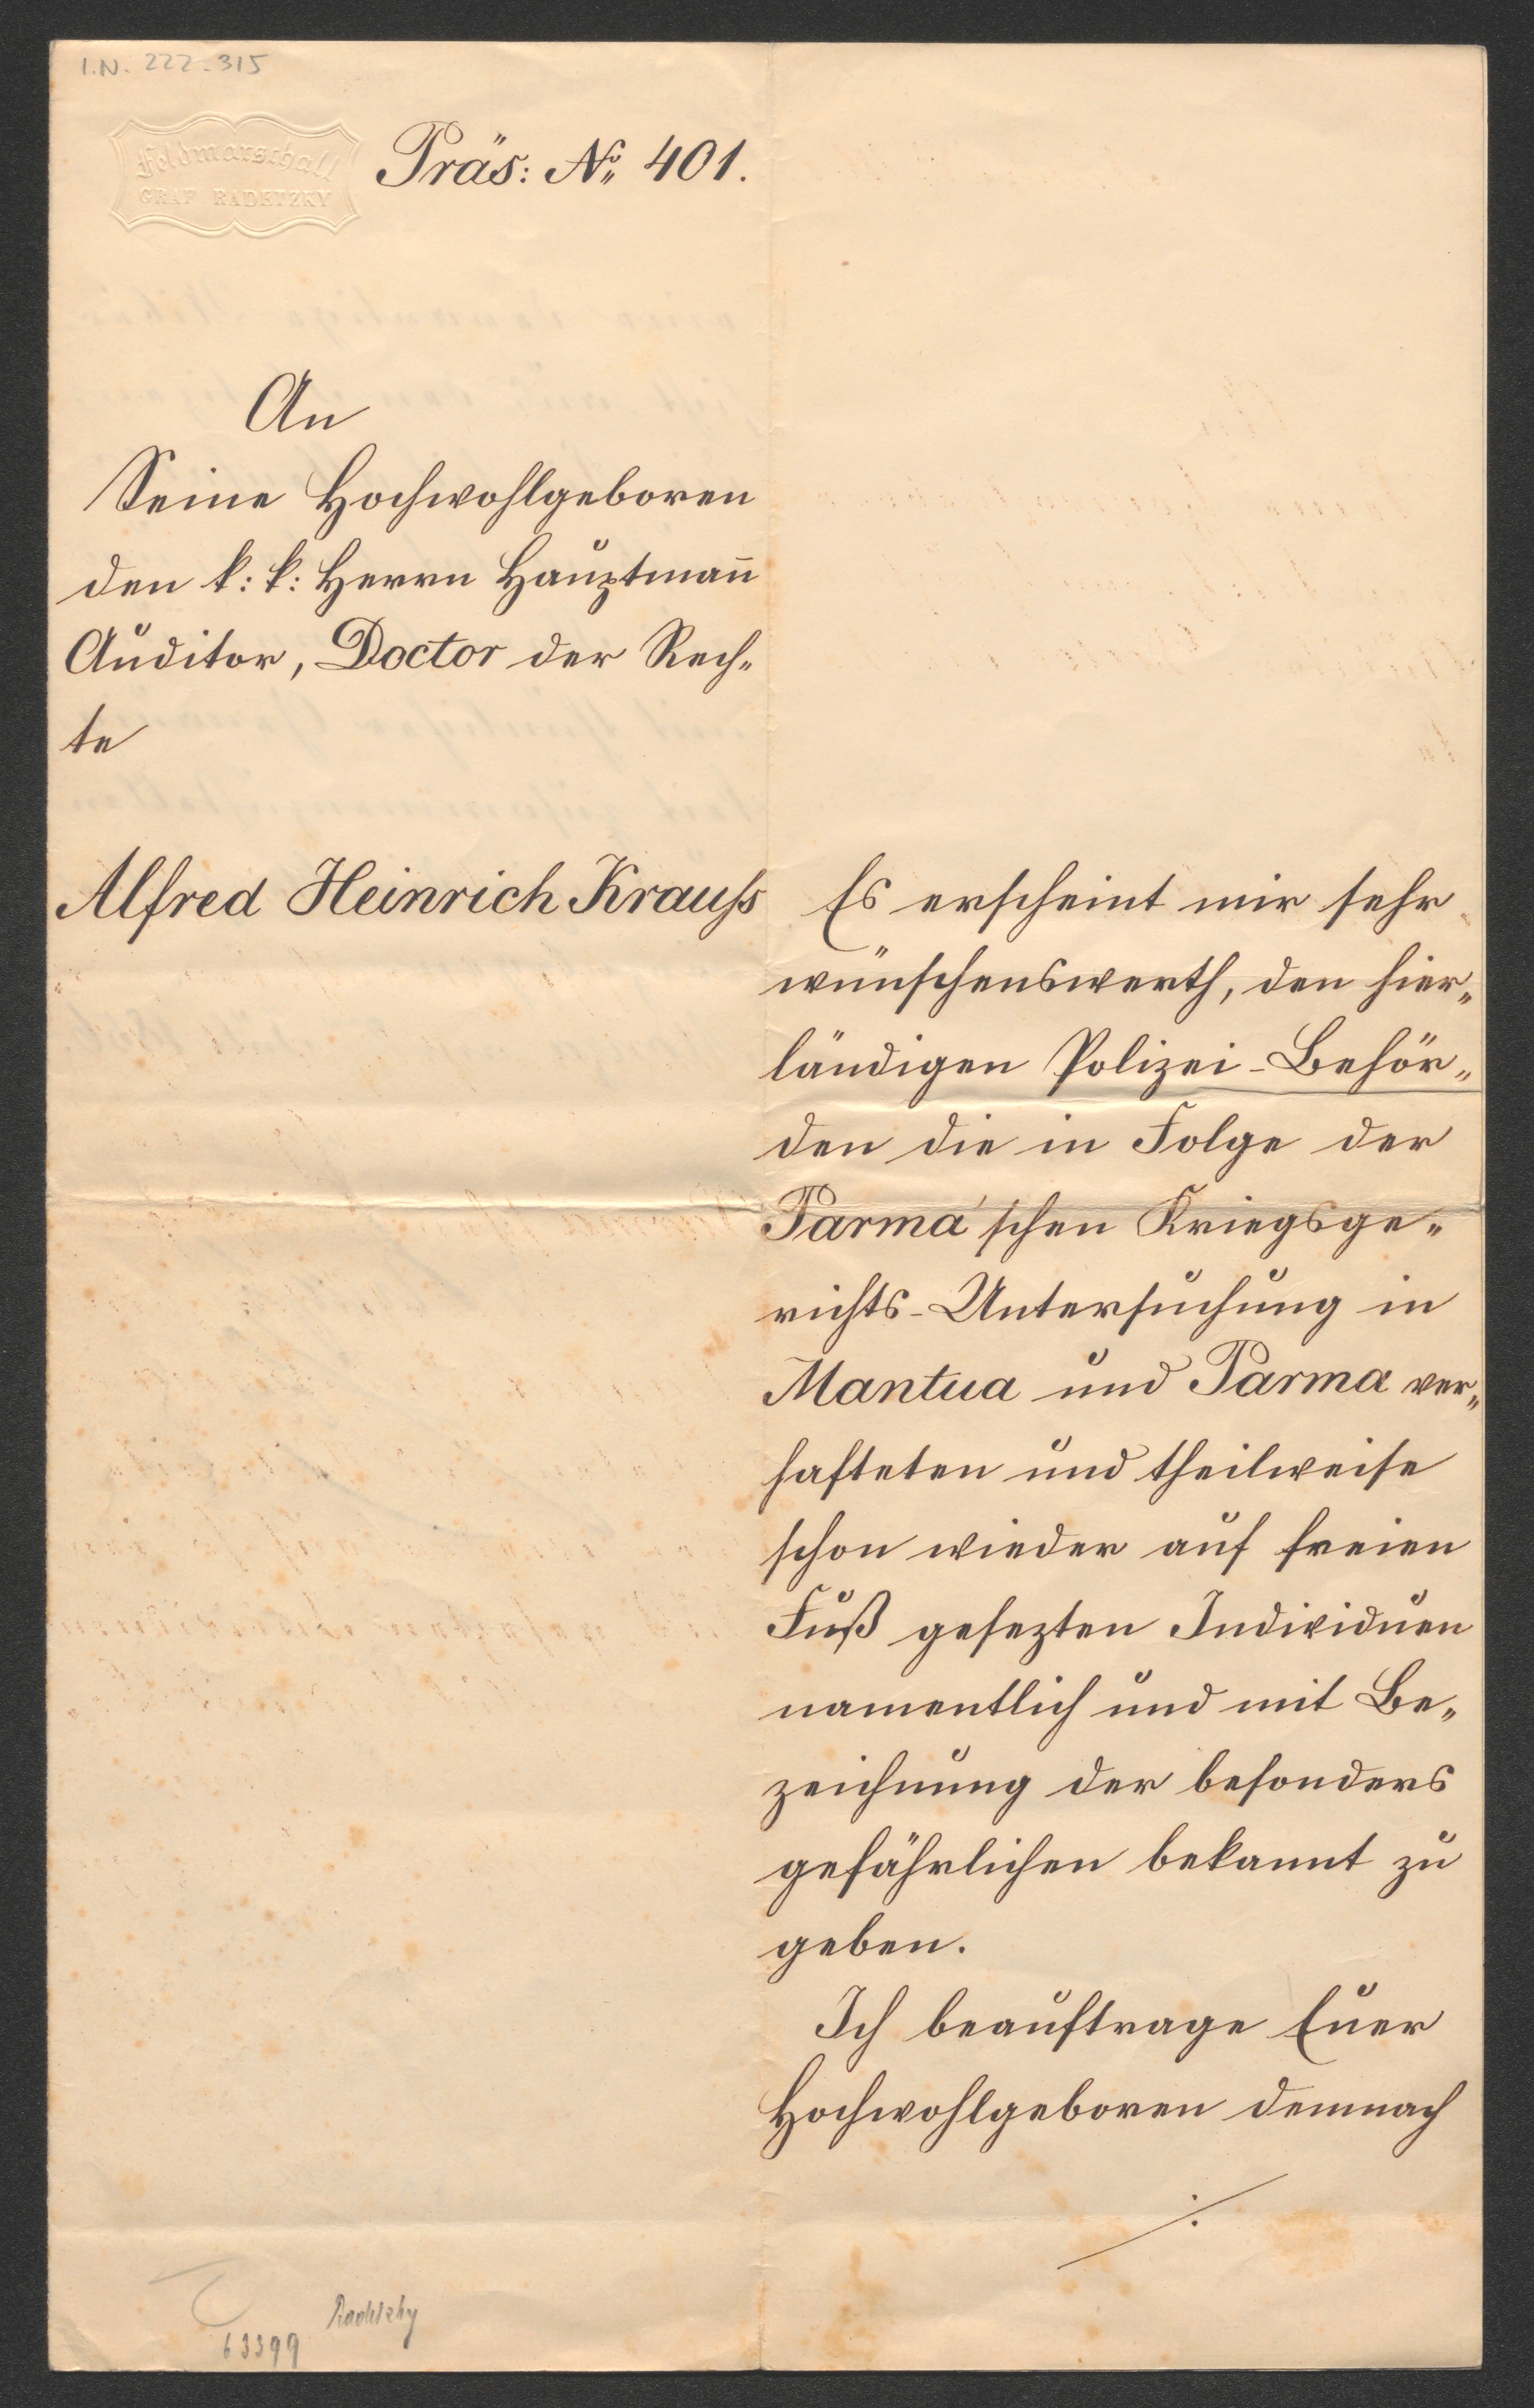 I.N. 222.315
Feldmarschall
GRAF RADETZKY
Präs: No 401.
An
Seine Hochwohlgeboren
den k: k: Herrn Hauptman̄
Auditor, Doctor der Rech„
te
Alfred Heinrich Krauſs
Es erscheint mir sehr
wünschenswerth, den hier„
ländigen Polizei-Behör„
den die in Folge der
Parma'schen Kriegsge„
richts-Untersuchung in
Mantua und Parma ver„
hafteten und theilweise
schon wieder auf freien
Fuß gesezten Individuen
namentlich und mit Be„
zeichnung der besonders
gefährlichen bekannt zu
geben.
Ich beauftrage Euer
Hochwohlgeboren demnach
./.
Radetzky
63399